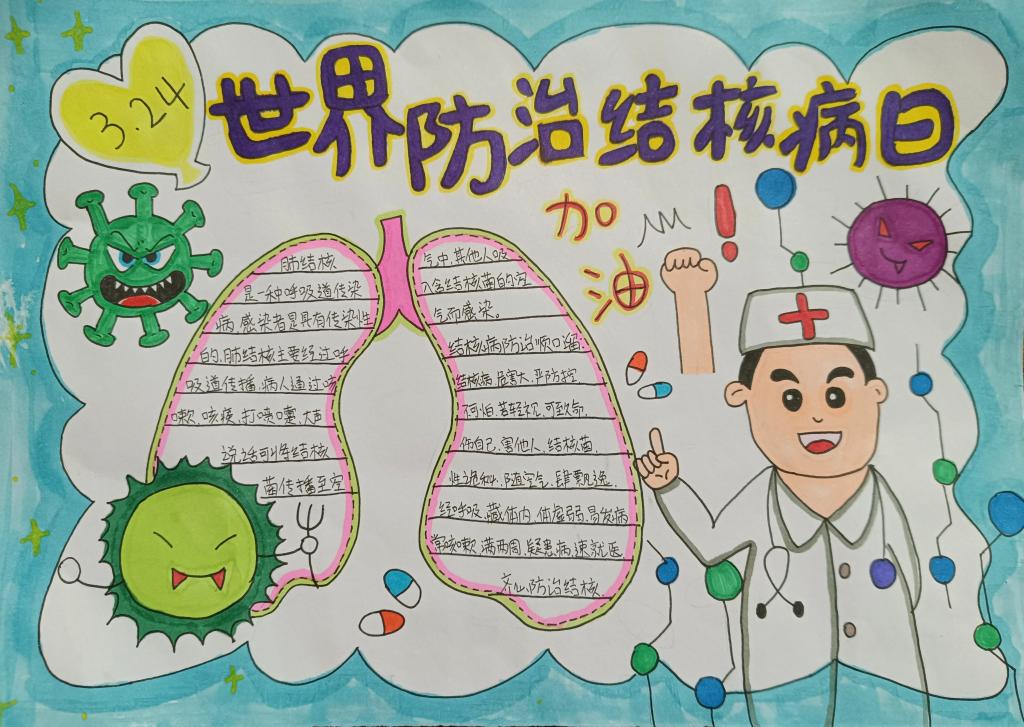 3.24
世界防治结核病日
加
油
!
肺结核
是一种呼吸道传染
病,感染者是具有传染性
的.肺结核主要经过呼
吸道传播.病人通过咳
嗽、咳痰、打喷嚏、大声
说话可将结核
菌传播至空
气中,其他人吸
入含结核菌的空
气而感染。
结核病防治顺口溜:
结核病,危害大,严防控,
何怕.若轻视,可致命,
伤自己,害他人,结核菌,
性诡秘,随空气,肆飘逸,
经呼吸,藏体内,体虚弱,易发病
常咳嗽,满两周,疑患病,速就医
齐心防治结核